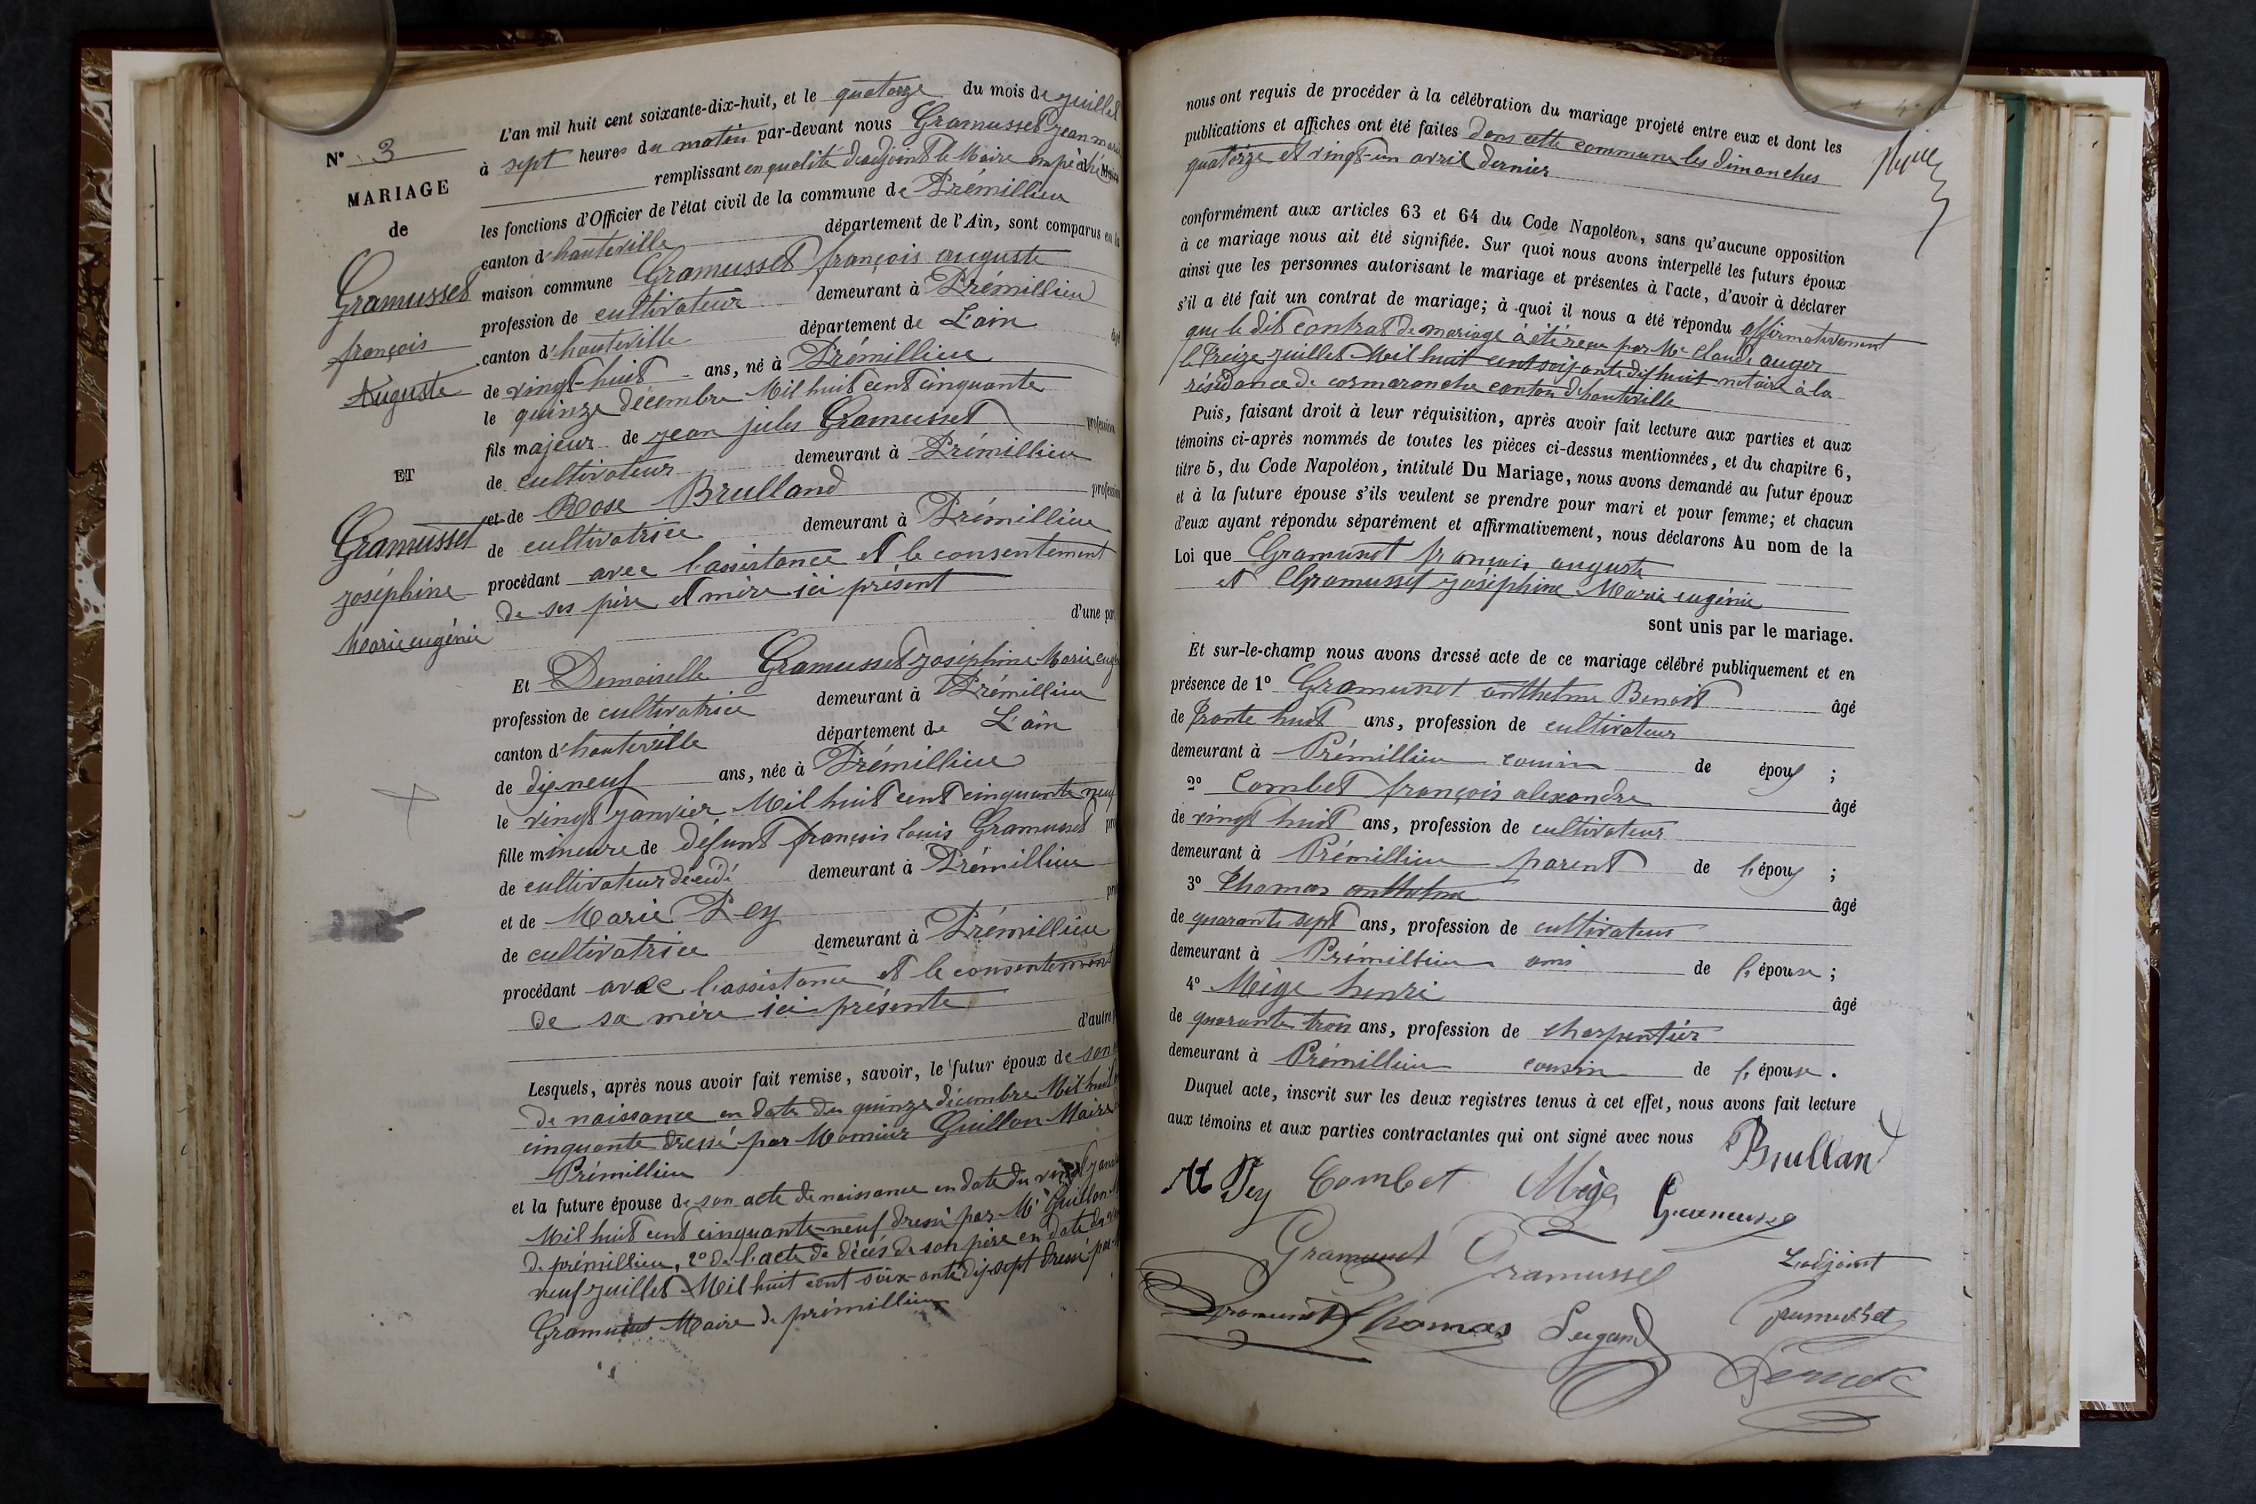 N° 3
MARIAGE
de
Gramusset
françois
Auguste
ET
Gramusset
joséphine
Marie eugénie
L'an mil huit cent soixante-dix-huit, et le quatorze du mois de juillet
à sept heures du matin par-devant nous Gramusset jean marie
remplissant en qualité d'adjoint le Maire empêché
les fonctions d'Officier de l'état civil de la commune de Prémillieu
canton d'hauteville département de l'Ain, sont comparus en la
maison commune Gramusset françois auguste
profession de cultivateur demeurant à Prémillieu
canton d'hauteville département de L'ain âgé
de vingt-huit ans, né à Prémillieu
le quinze décembre Mil huit cent cinquante
fils majeur de jean jules Gramusset profession
de cultivateur demeurant à Prémillieu
et de Rose Brulland profession
de cultivatrice demeurant à Prémillieu
procédant avec l'assistance et le consentement
de ses père et mère ici présent
d'une par
Et Demoiselle Gramusset joséphine Marie eug
profession de cultivatrice demeurant à Prémillieu
canton d'hauteville département de L'ain
de dix neuf ans, née à Prémillieu
le vingt janvier Mil huit cent cinquante neuf
fille mineure de défunt françois louis Gramusset pro
de cultivateur décédé demeurant à Prémillieu
et de Marie Pey pro
de cultivatrice demeurant à Prémillieu
procédant avec l'assistance et le consentement
de sa mère ici présente
d'autre
Lesquels, après nous avoir fait remise, savoir, le futur époux de son
de naissance en date du quinze décembre Mil huit
cinquante dressé par Monsieur Guillon Maire
Prémillieu
et la future épouse de son acte de naissance en date du vingt janv
Mil huit cent cinquante-neuf dressé par Mr Guillon
de prémillieu, 2° de l'acte de décès de son père en date du
neuf juillet Mil huit cent soixante dix-sept dressé par
Gramusset Maire de prémillieu
nous ont requis de procéder à la célébration du mariage projeté entre eux et dont les
publications et affiches ont été faites dans cette commune les dimanches
quatorze et vingt-un avril dernier
conformément aux articles 63 et 64 du Code Napoléon, sans qu'aucune opposition
à ce mariage nous ait été signifiée. Sur quoi nous avons interpellé les futurs époux
ainsi que les personnes autorisant le mariage et présentes à l'acte, d'avoir à déclarer
s'il a été fait un contrat de mariage; à quoi il nous a été répondu affirmativement
que le dit contrat de mariage à été reçu par Me Claude auger
le Treize juillet Mil huit cent soixante dix huit notaire à la
résidance de cormaranche canton d'hauteville
Puis, faisant droit à leur réquisition, après avoir fait lecture aux parties et aux
témoins ci-après nommés de toutes les pièces ci-dessus mentionnées, et du chapitre 6,
titre 5, du Code Napoléon, intitulé Du Mariage, nous avons demandé au futur époux
et à la future épouse s'ils veulent se prendre pour mari et pour femme; et chacun
d'eux ayant répondu séparément et affirmativement, nous déclarons Au nom de la
Loi que Gramusset françois auguste
et Gramusset joséphine Marie eugénie
sont unis par le mariage.
Et sur-le-champ nous avons dressé acte de ce mariage célébré publiquement et en
présence de 1° Gramusset anthelme Benoit âgé
de trante huit ans, profession de cultivateur
demeurant à Prémillieu cousin de époux ;
2° Combet françois alexandre âgé
de vingt huit ans, profession de cultivateur
demeurant à Prémillieu parent de l'époux ;
3° Thomas anthelme âgé
de quarante sept ans, profession de cultivateur
demeurant à Prémillieu ami de l'épouse ;
4° Mège henri âgé
de quarante trois ans, profession de charpentier
demeurant à Prémillieu cousin de l'épouse .
Duquel acte, inscrit sur les deux registres tenus à cet effet, nous avons fait lecture
aux témoins et aux parties contractantes qui ont signé avec nous
R Brulland
M Pey Combet Mège Gramusset
Gramusset Gramusset L'adjoint
Gramusset Thomas Gramusset